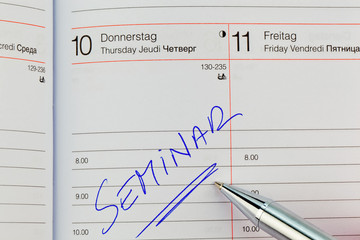 10 Donnerstag
Thursday Jeudi Четверг
11 Freitag
Friday Vendredi Пятница
credi Среда
129-236
130-235
SEMINAR
8.00
8.00
9.00
9.00
10.00